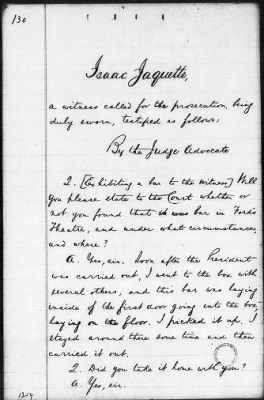 130
Isaac Jaquette,
a witness called for the prosecution, being
duly sworn, testified as follows:
By the Judge Advocate
Q. [Exhibiting a bar to the witness] Will
you please state to the Court whether or
not you found that it was bar in Ford's
Theatre, and under what circumstances,
and where?
A. Yes, sir. Soon after the President
was carried out, I went to the box with
several others, and this bar was laying
inside of the first door going into the box,
laying on the floor. I picked it up, I
stayed around there some time and then
carried it out.
Q. Did you take it home with you?
A. Yes, sir.
1214